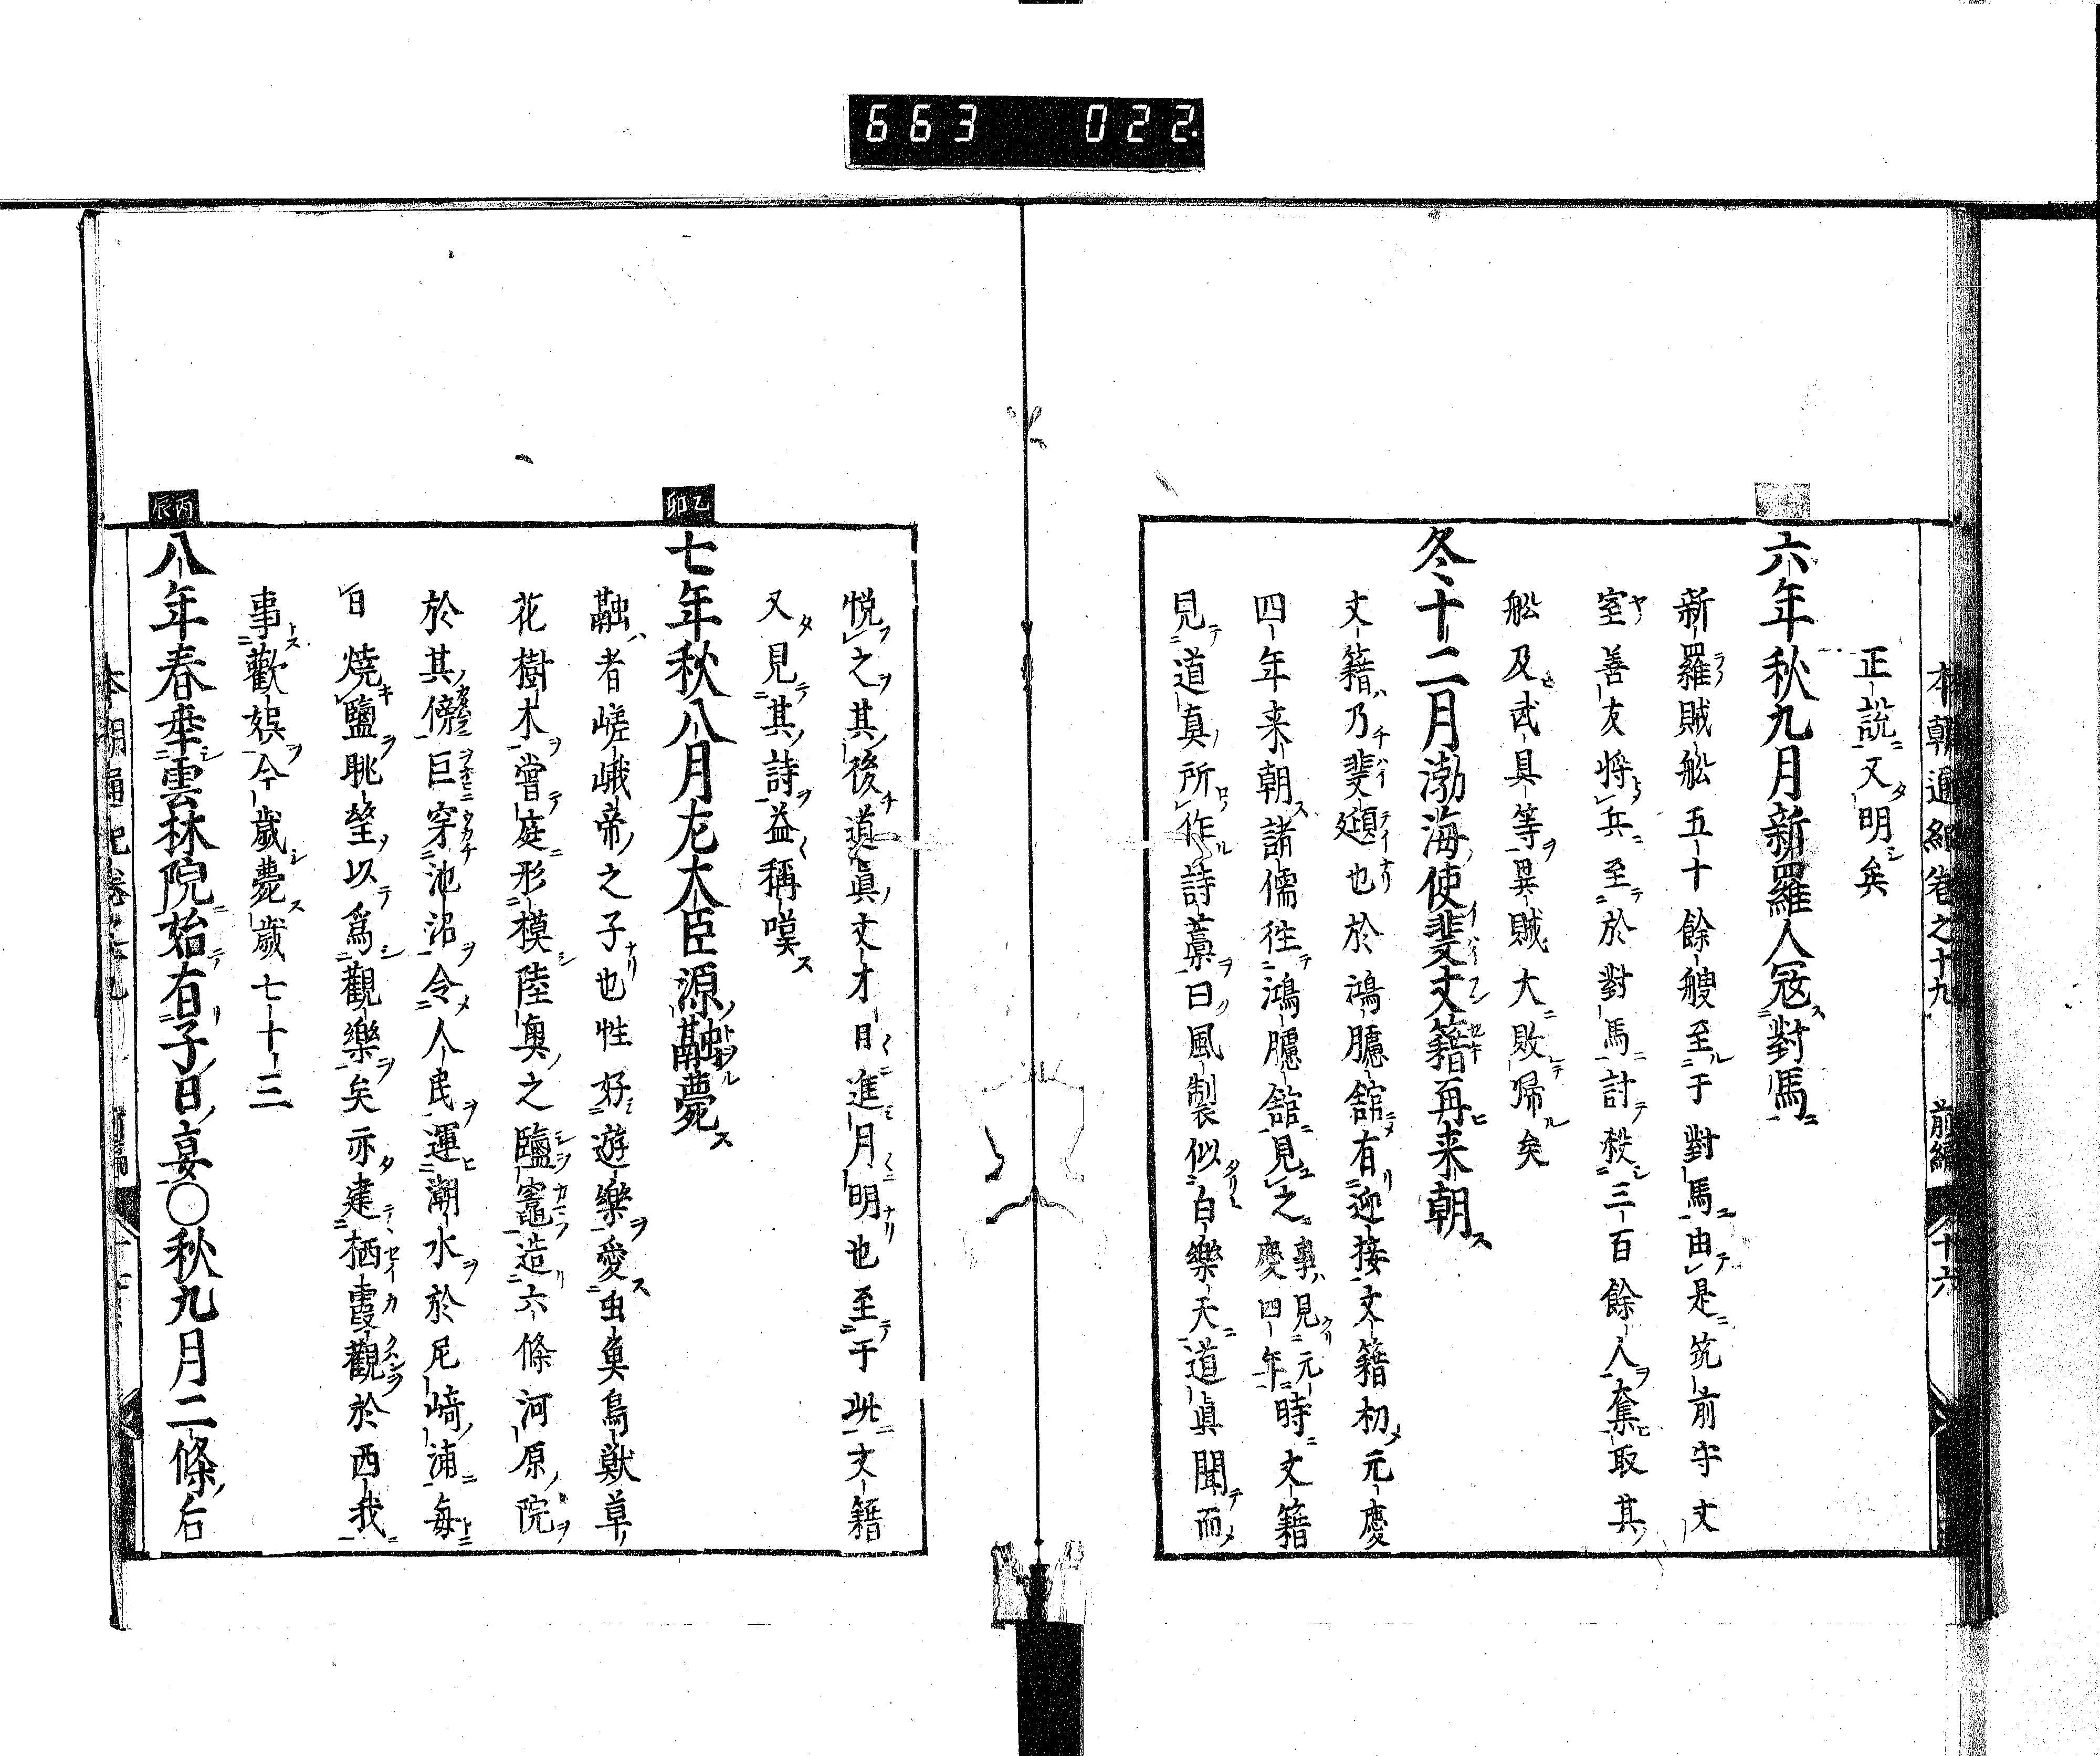 663 022
本朝通紀卷之十九 前編 十六
正説又明矣
六年秋九月新羅人冦對馬
新羅賊舩五十餘艘至于對馬由是筑前守文
室善友將兵至於對馬計殺三百餘人奪取其
舩及武具等異賊大敗歸矣
冬十二月渤海使裴文籍再来朝
文籍乃裴頲也於鴻臚舘有迎接文籍初元慶
四年来朝諸儒徃鴻臚舘見之事見元慶四年時文籍
見道真所作詩藁曰風製似白樂天道眞聞而
悦之其後道眞文才日進月明也至于此文籍
又見其詩益稱嘆
乙卯
七年秋八月左大臣源融薨
融者嵯峨帝之子也性好遊樂愛虫魚鳥獣草
花樹木嘗庭形模陸奥之鹽竈造六條河原院
於其傍巨穿池沼令人民運潮水於尼﨑浦毎
日焼鹽眺望以爲觀樂矣亦建栖霞觀於西我
事歡娯今歳薨歳七十三
丙辰
八年春幸雲林院始有子日宴〇秋九月二條后
本朝通紀卷之十九 前編